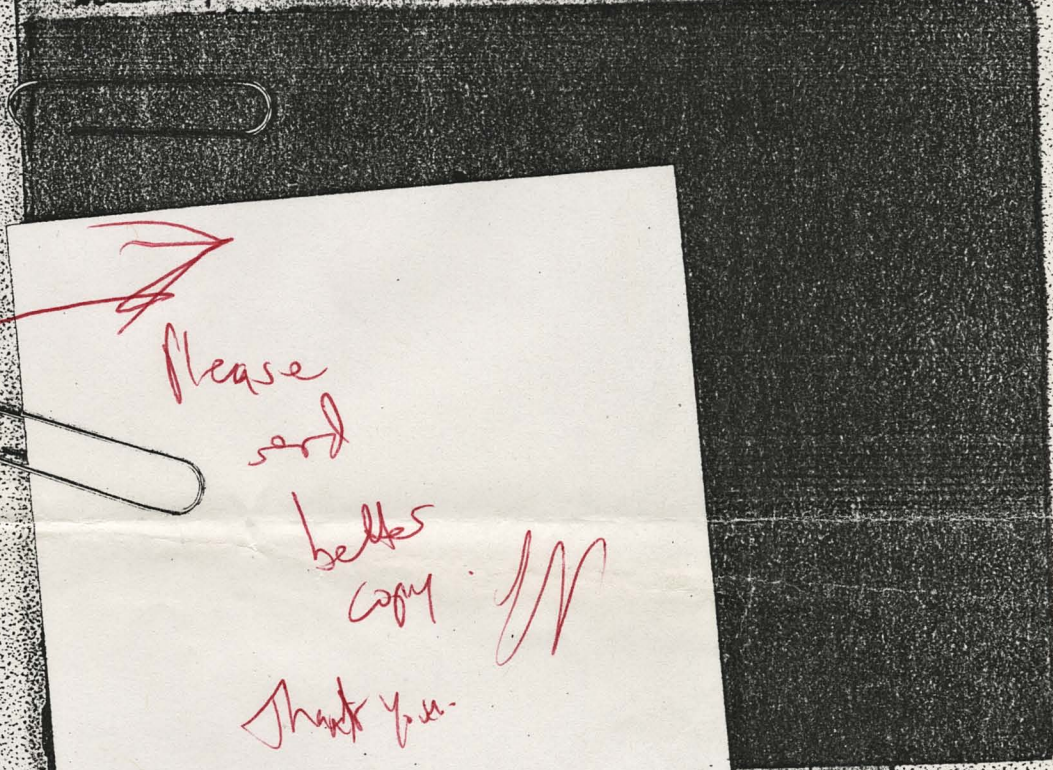 Please
send
better
copy.
Thank you.